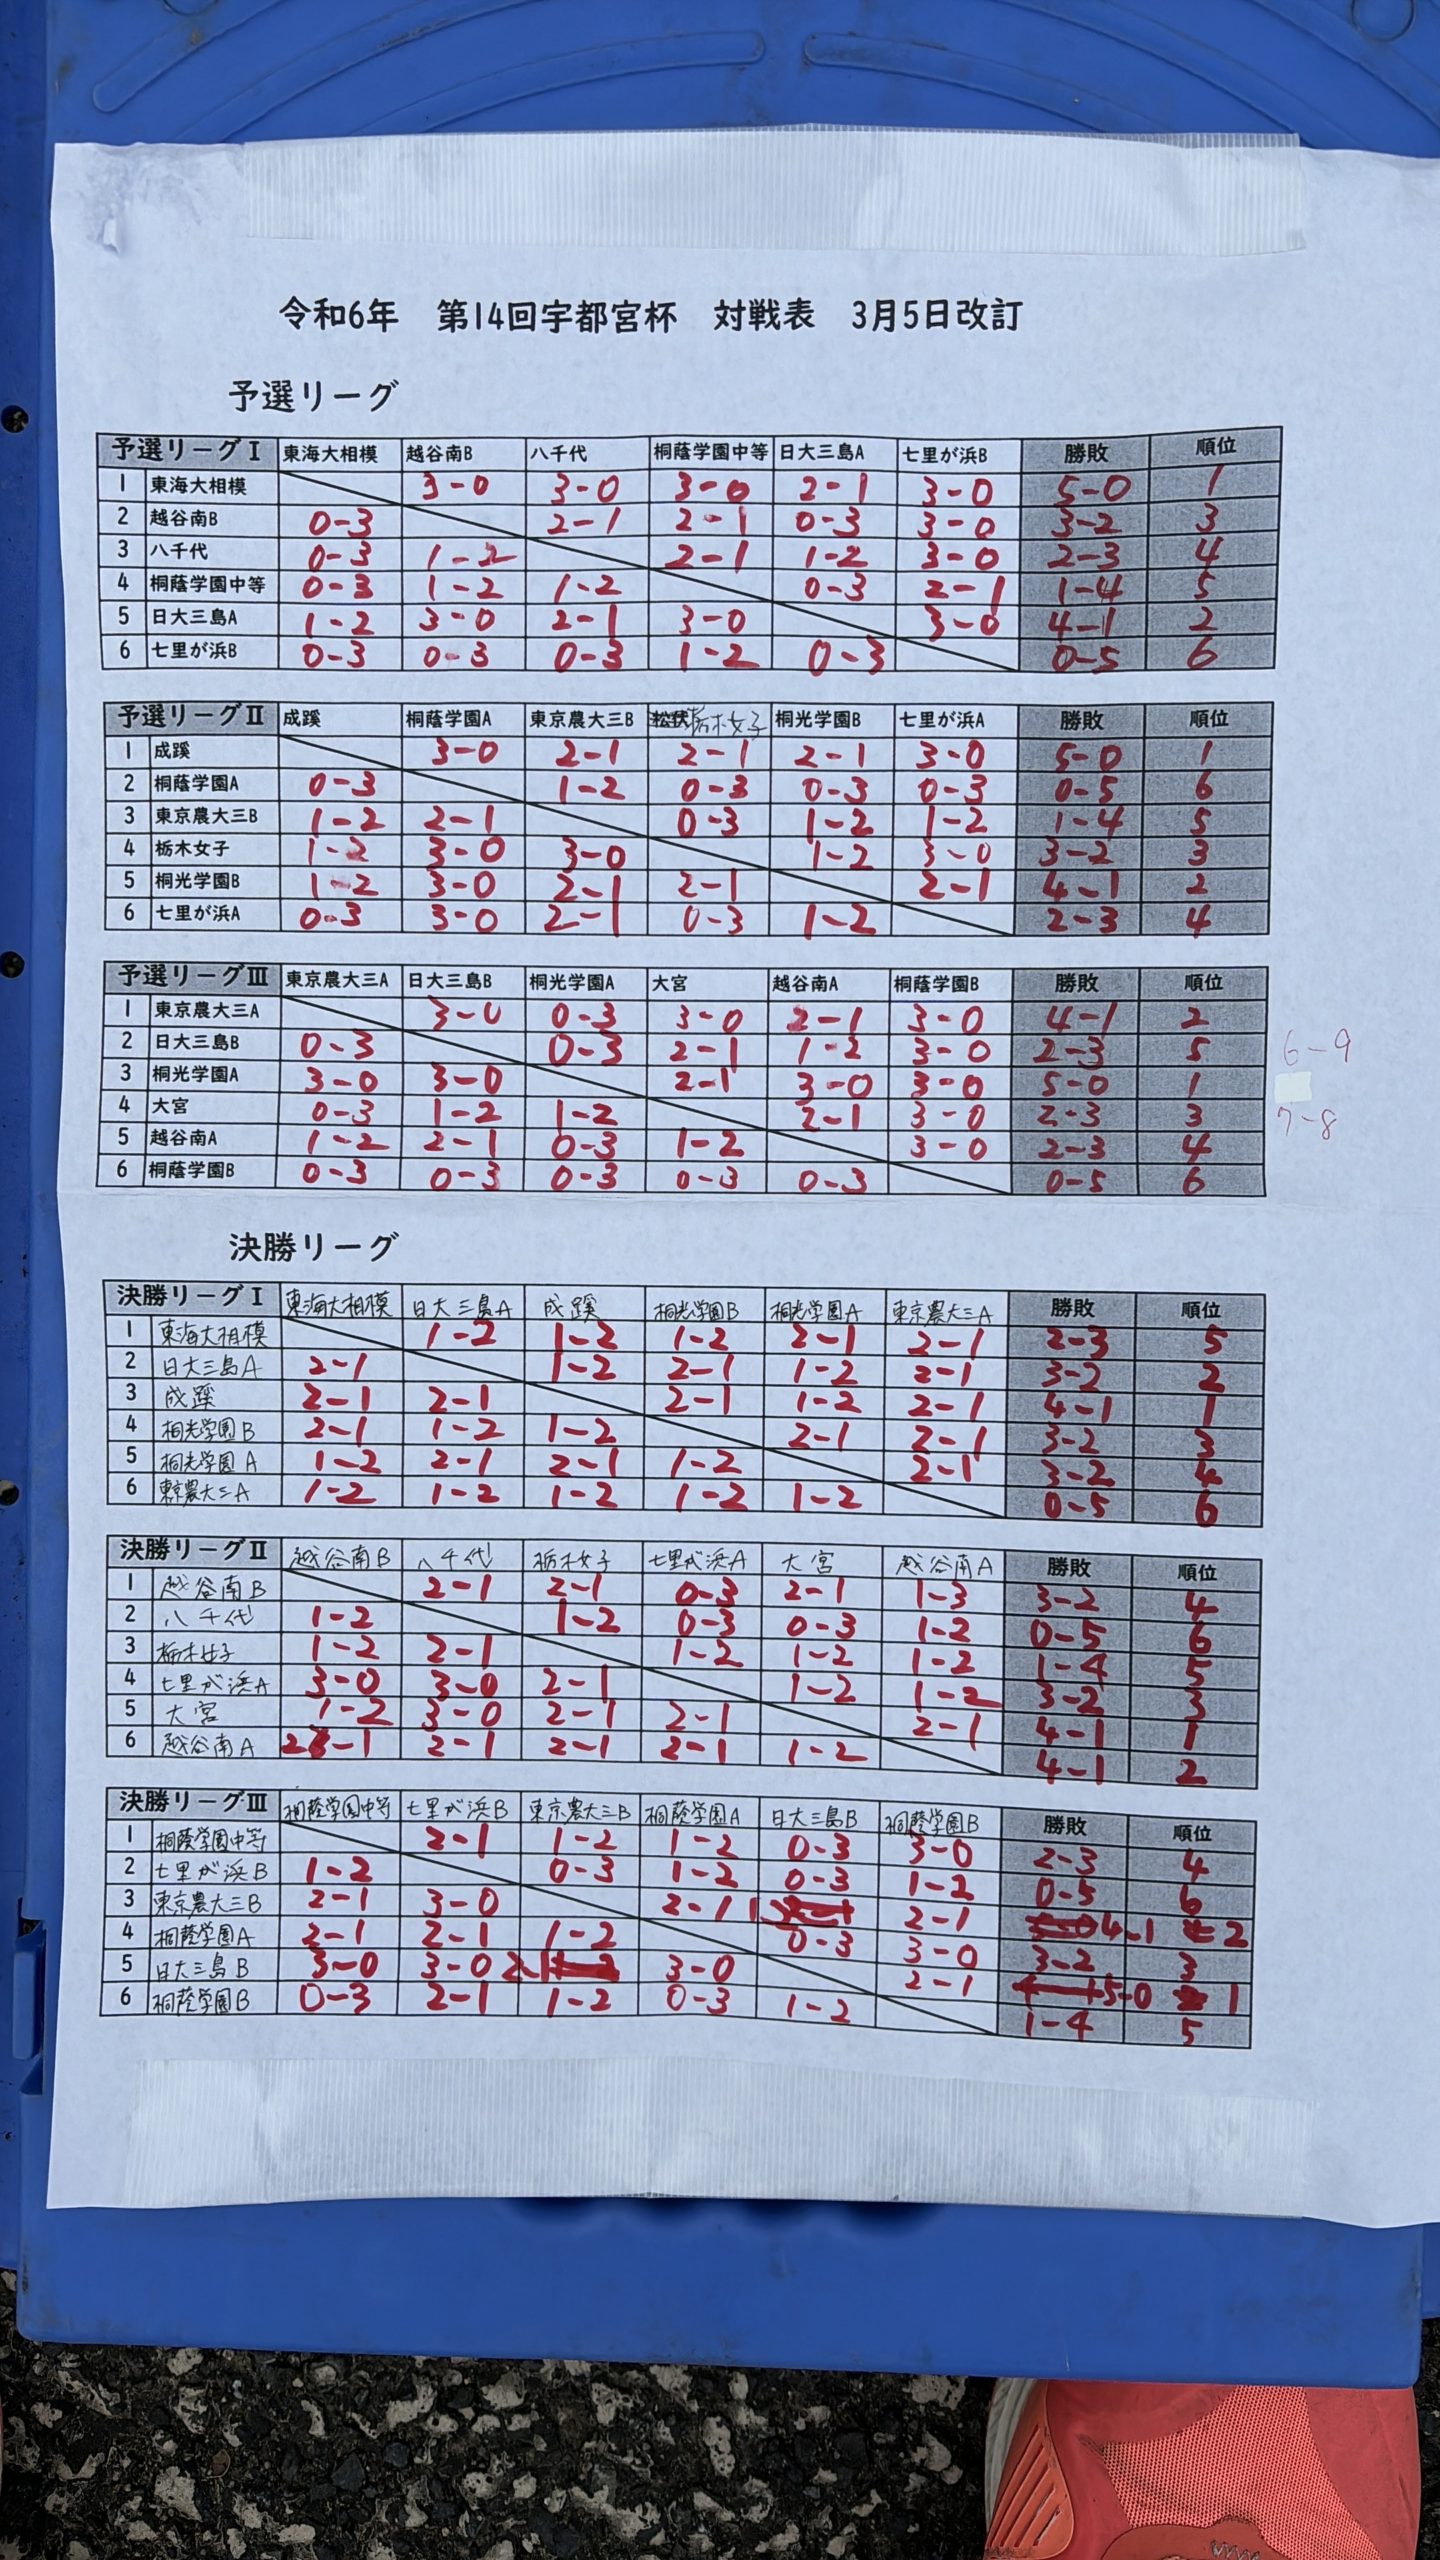 令和6年 第14回宇都宮杯 対戦表 3月5日改訂
予選リーグ
予選リーグⅠ 東海大相模 越谷南B 八千代 桐蔭学園中等 日大三島A 七里が浜B 勝敗 順位
1 東海大相模 3-0 3-0 3-0 2-1 3-0 5-0 1
2 越谷南B 0-3 2-1 2-1 0-3 3-0 3-2 3
3 八千代 0-3 1-2 2-1 1-2 3-0 2-3 4
4 桐蔭学園中等 0-3 1-2 1-2 0-3 2-1 1-4 5
5 日大三島A 1-2 3-0 2-1 3-0 3-0 4-1 2
6 七里が浜B 0-3 0-3 0-3 1-2 0-3 0-5 6
予選リーグⅡ 成蹊 桐蔭学園A 東京農大三B 松伏 栃木女子 桐光学園B 七里が浜A 勝敗 順位
1 成蹊 3-0 2-1 2-1 2-1 3-0 5-0 1
2 桐蔭学園A 0-3 1-2 0-3 0-3 0-3 0-5 6
3 東京農大三B 1-2 2-1 0-3 1-2 1-2 1-4 5
4 栃木女子 1-2 3-0 3-0 1-2 3-0 3-2 3
5 桐光学園B 1-2 3-0 2-1 2-1 2-1 4-1 2
6 七里が浜A 0-3 3-0 2-1 0-3 1-2 2-3 4
予選リーグⅢ 東京農大三A 日大三島B 桐光学園A 大宮 越谷南A 桐蔭学園B 勝敗 順位
1 東京農大三A 3-0 0-3 3-0 2-1 3-0 4-1 2
2 日大三島B 0-3 0-3 2-1 1-2 3-0 2-3 5 6-9
3 桐光学園A 3-0 3-0 2-1 3-0 3-0 5-0 1
4 大宮 0-3 1-2 1-2 2-1 3-0 2-3 3 7-8
5 越谷南A 1-2 2-1 0-3 1-2 3-0 2-3 4
6 桐蔭学園B 0-3 0-3 0-3 0-3 0-3 0-5 6
決勝リーグ
決勝リーグⅠ 東海大相模 日大三島A 成蹊 桐光学園B 桐光学園A 東京農大三A 勝敗 順位
1 東海大相模 1-2 1-2 1-2 2-1 2-1 2-3 5
2 日大三島A 2-1 1-2 2-1 1-2 2-1 3-2 2
3 成蹊 2-1 2-1 2-1 1-2 2-1 4-1 1
4 桐光学園B 2-1 1-2 1-2 2-1 2-1 3-2 3
5 桐光学園A 1-2 2-1 2-1 1-2 2-1 3-2 4
6 東京農大三A 1-2 1-2 1-2 1-2 1-2 0-5 6
決勝リーグⅡ 越谷南B 八千代 栃木女子 七里が浜A 大宮 越谷南A 勝敗 順位
1 越谷南B 2-1 2-1 0-3 2-1 1-3 3-2 4
2 八千代 1-2 1-2 0-3 0-3 1-2 0-5 6
3 栃木女子 1-2 2-1 1-2 1-2 1-2 1-4 5
4 七里が浜A 3-0 3-0 2-1 1-2 1-2 3-2 3
5 大宮 1-2 3-0 2-1 2-1 2-1 4-1 1
6 越谷南A 2-1 2-1 2-1 2-1 1-2 4-1 2
決勝リーグⅢ 桐蔭学園中等 七里が浜B 東京農大三B 桐蔭学園A 日大三島B 桐蔭学園B 勝敗 順位
1 桐蔭学園中等 2-1 1-2 1-2 0-3 3-0 2-3 4
2 七里が浜B 1-2 0-3 1-2 0-3 1-2 0-5 6
3 東京農大三B 2-1 3-0 2-1 2-1 4-1 2
4 桐蔭学園A 2-1 2-1 1-2 0-3 3-0 3-2 3
5 日大三島B 3-0 3-0 2-1 3-0 2-1 5-0 1
6 桐蔭学園B 0-3 2-1 1-2 0-3 1-2 1-4 5